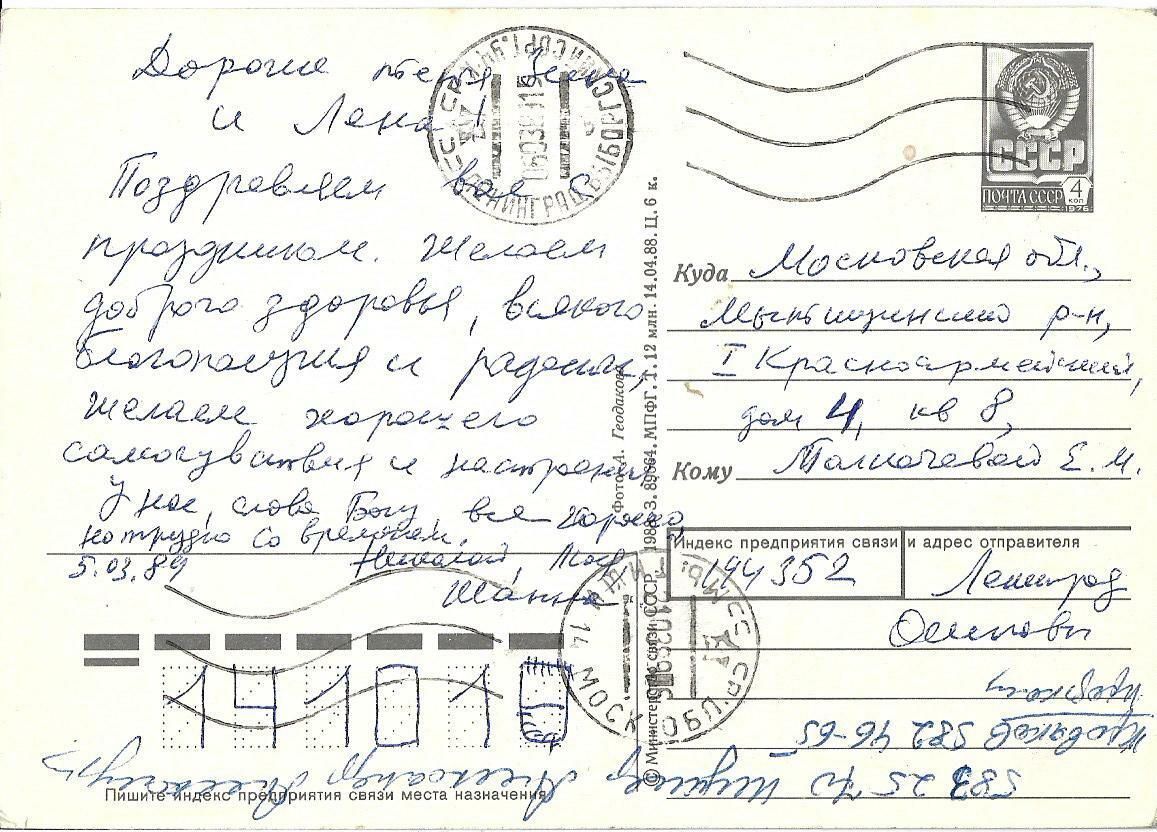 Дорогие тётя Зина
и Лена!
Поздравляем вас с
праздником. Желаем
доброго здоровья, всякого
благополучия и радости,
желаем хорошего
самочувствия и настроения
У нас, слава Богу, все хорошо
но трудно со временем.
5.03.89
Николай,
Жанна
СССР
ПОЧТА СССР
4
коп
1976
ЛЕНИНГРАД
Куда Московская обл.,
Мытищинский р-н,
I Красноармейский,
дом 4, кв 8,
Кому Толмачевой Е. М.
Индекс предприятия связи и адрес отправителя
194352
Ленинград
Осиповы
141010
МОСК. ОБЛ.
582 46-65
Александр
Пишите индекс предприятия связи места назначения
Фото А. Геодакова
© Министерство связи СССР. 1988. З. 89664. МПФГ. Т. 12 млн. 14.04.88. Ц. 6 к.